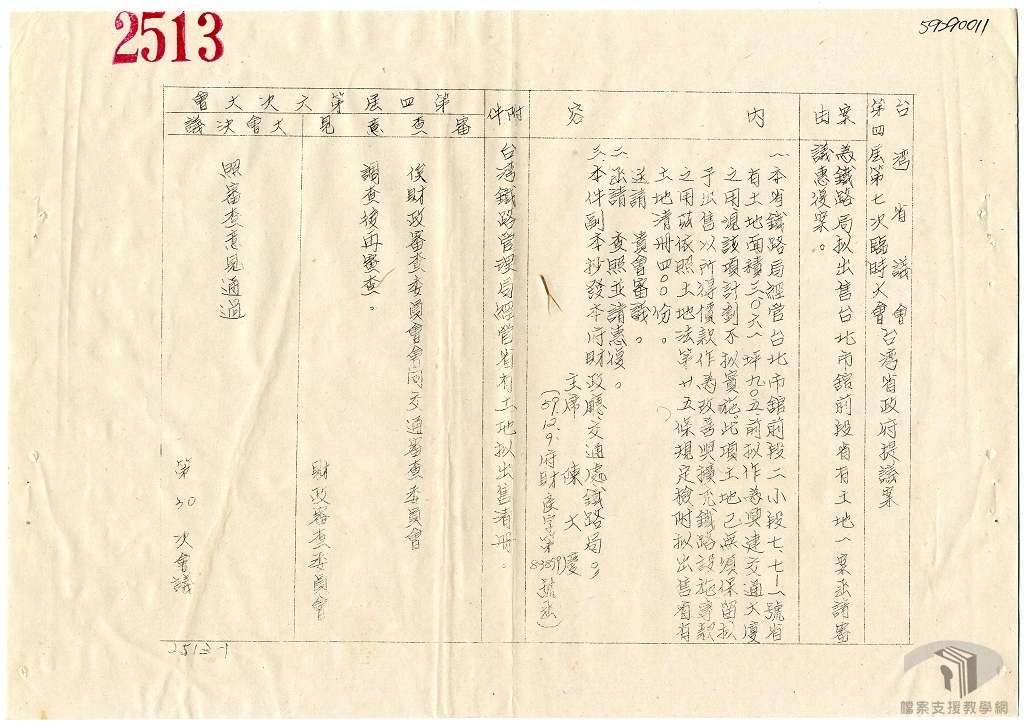 2513
59290011
台湾省議會
第四届第七次臨時大會
台湾省政府提議案
案由
為鐵路局拟出售台北市舘前段省有土地一案函請審
議惠復案。
內容
一、本省鐵路局經管台北市舘前段二小段七、七—一號省
有土地面積三〇六一坪九〇五前拟作為興建交通大廈
之用現該項計劃不拟實施此項土地已無須保留拟
予出售以所得價款作為改善與擴充鐵路設施專款
之用茲依照土地法第廿五條規定檢附拟出售省有
土地清册四〇〇份。
送請 貴會審議。
二、函請 查照並請惠復。
三、本件副本抄發本府財政廳、交通處、鐵路局。
主席 陳大慶
(59.12.9.府財產字第83859號函)
附件
台湾鐵路管理局經管省有土地拟出售清册。
第四届第六次大會
審查意見
俟財政審查委員會會同交通審查委員會
調查後再審查。
財政審查委員會
大會決議
照審查意見通過
第30次會議
2513-1
檔案支援教學網